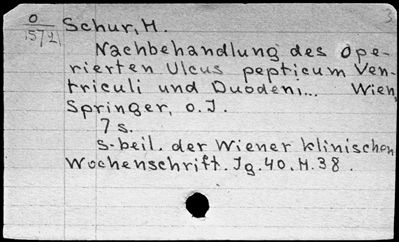 O Schur, H.
15721
Nachbehandlung des ope-
rierten Ulcus pepticum Ven-
triculi und Duodeni... Wien,
Springer, o.J.
7 s.
S-beil. der Wiener klinischen
Wochenschrift. Jg. 40. H. 38.